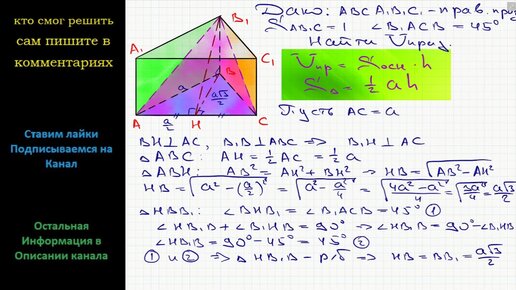 кто смог решить
сам пишите в
комментариях
Ставим лайки
Подписываемся на
Канал
Остальная
Информация в
Описании канала
A₁
B₁
C₁
B
a
a√3/2
A
a/2
H
C
Дано: ABCA₁B₁C₁ - прав. приз
S AB₁C = 1 ∠B₁ACB = 45°
Найти Vприз.
Vпр = Sосн · h
S△ = 1/2 ah
Пусть AC = a
BH ⊥ AC, B₁B ⊥ ABC ⇒ B₁H ⊥ AC
△ABC: AH = 1/2 AC = 1/2 a
△ABH: AB² = AH² + BH² → HB = √AB² - AH²
HB = √a² - (a/2)² = √a² - a²/4 = √4a² - a²/4 = √3a²/4 = a√3/2
△HBB₁: ∠BHB₁ = ∠B₁ACB = 45° ①
∠HB₁B + ∠B₁HB = 90° ⇒ ∠HBB = 90° - ∠B₁HB
∠HB₁B = 90° - 45° = 45° ②
① и ② ⇒ △HB₁B - р/б ⇒ HB = BB₁ = a√3/2